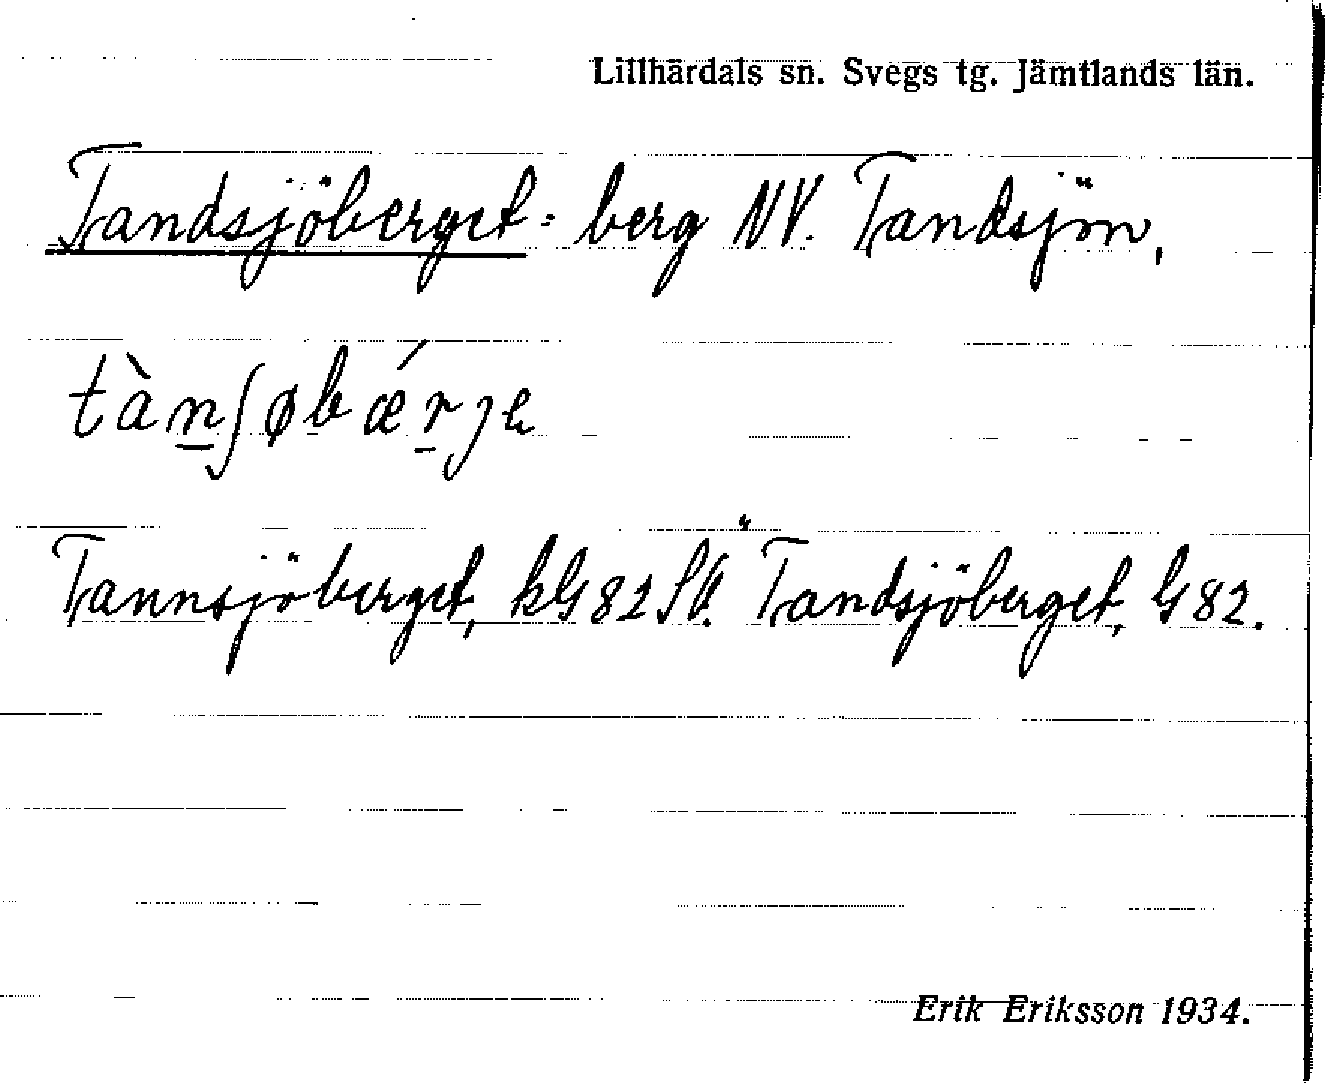 Lillhärdals sn. Svegs tg. Jämtlands län.
Tandsjöberget = berg NV. Tandsjön,
tàn̲ʃøbǽr̲je
Tannsjöberget, kG 82 SV. Tandsjöberget, G 82.
Erik Eriksson 1934.